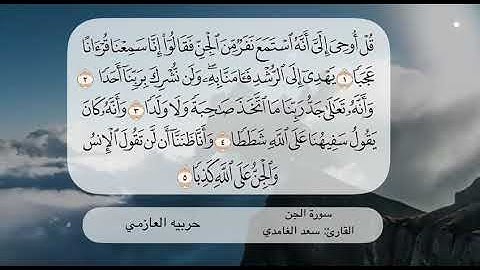 قُلْ أُوحِىَ إِلَىَّ أَنَّهُ ٱسْتَمَعَ نَفَرٌ مِّنَ ٱلْجِنِّ فَقَالُوٓا۟ إِنَّا سَمِعْنَا قُرْءَانًا
عَجَبًا ١ يَهْدِىٓ إِلَى ٱلرُّشْدِ فَـَٔامَنَّا بِهِۦ ۖ وَلَن نُّشْرِكَ بِرَبِّنَآ أَحَدًا ٢
وَأَنَّهُۥ تَعَـٰلَىٰ جَدُّ رَبِّنَا مَا ٱتَّخَذَ صَـٰحِبَةً وَلَا وَلَدًا ٣ وَأَنَّهُۥ كَانَ
يَقُولُ سَفِيهُنَا عَلَى ٱللَّهِ شَطَطًا ٤ وَأَنَّا ظَنَنَّآ أَن لَّن تَقُولَ ٱلْإِنسُ
وَٱلْجِنُّ عَلَى ٱللَّهِ كَذِبًا ٥
سورة الجن
القارئ: سعد الغامدي
حربيه العازمي